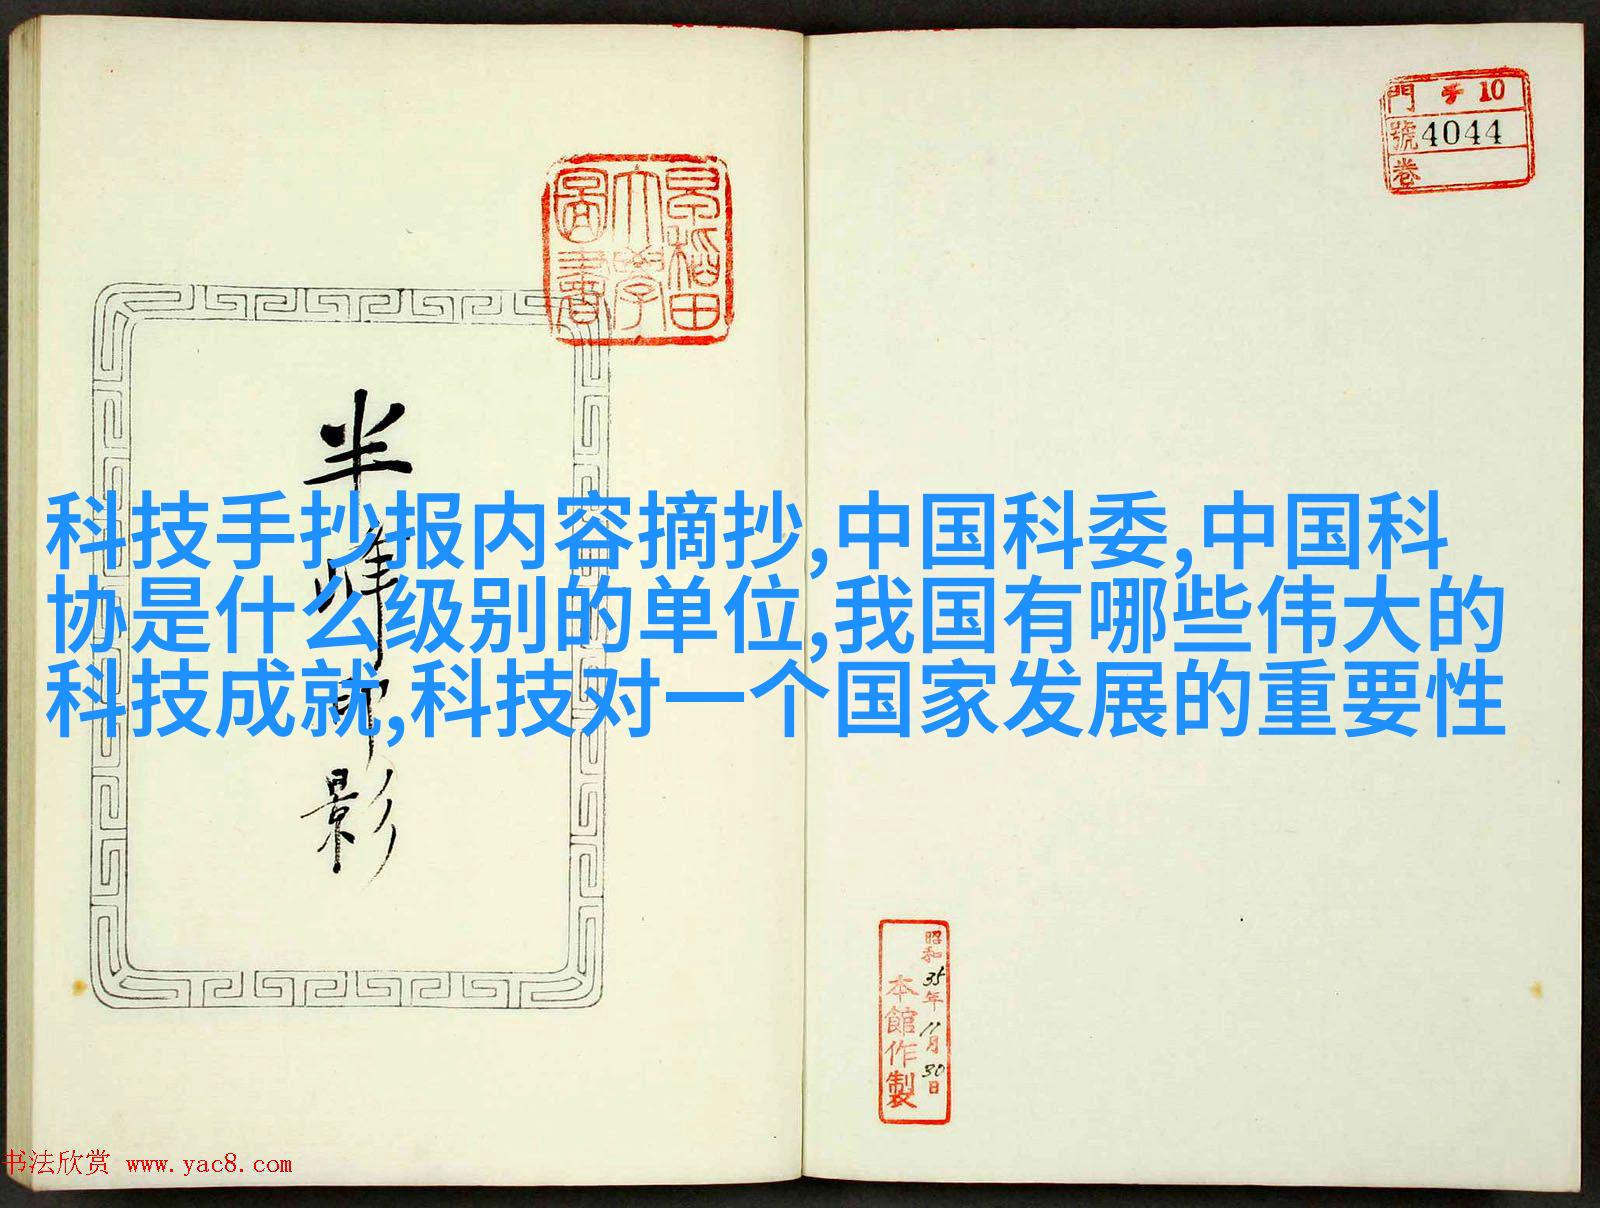 科技手抄报内容摘抄,中国科委,中国科
协是什么级别的单位,我国有哪些伟大的
科技成就,科技对一个国家发展的重要性
半峰印影
早稻田
大學
圖書
門 チ 10
號 4044
卷
昭和35年11月30日
本館作製
书法欣赏 www.yac8.com